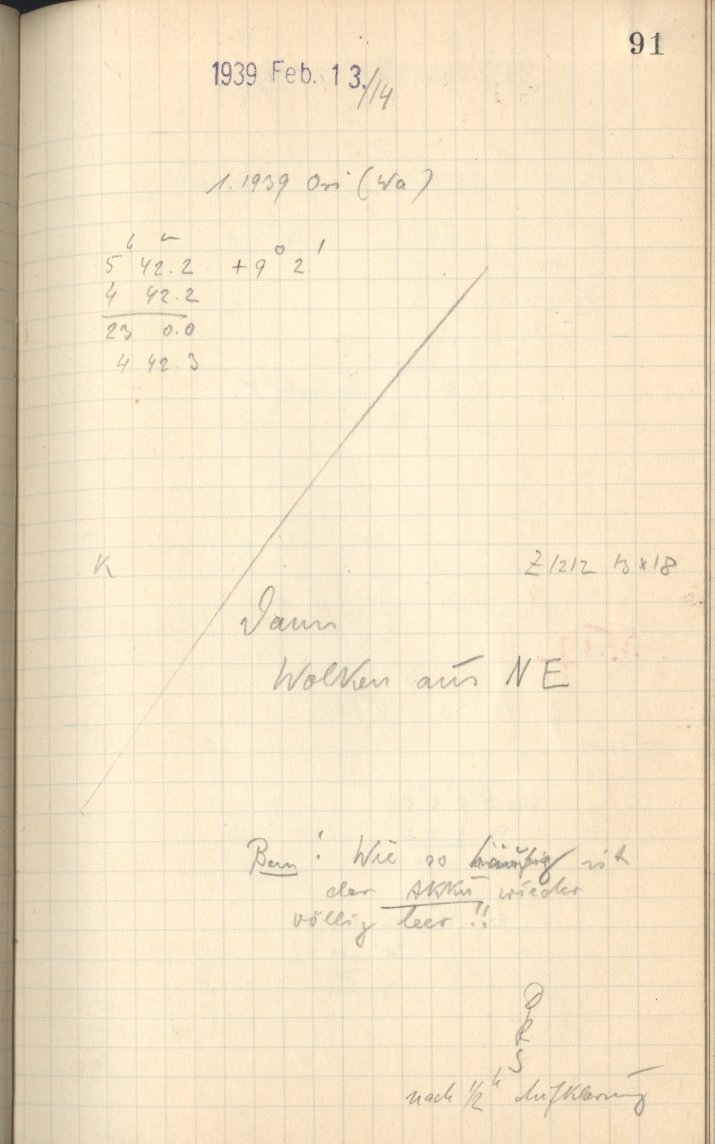 91
1939 Feb. 13./14
1. 1939 Ori (Wa)
5h 42m.2 +9° 2'
4 42.2
23 0.0
4 42.3
K
Z1212 13x18
Dann
Wolken aus NE
Bem! Wie so häufig ist
der Akku wieder
völlig leer!!
nach 1/2h Aufklarung